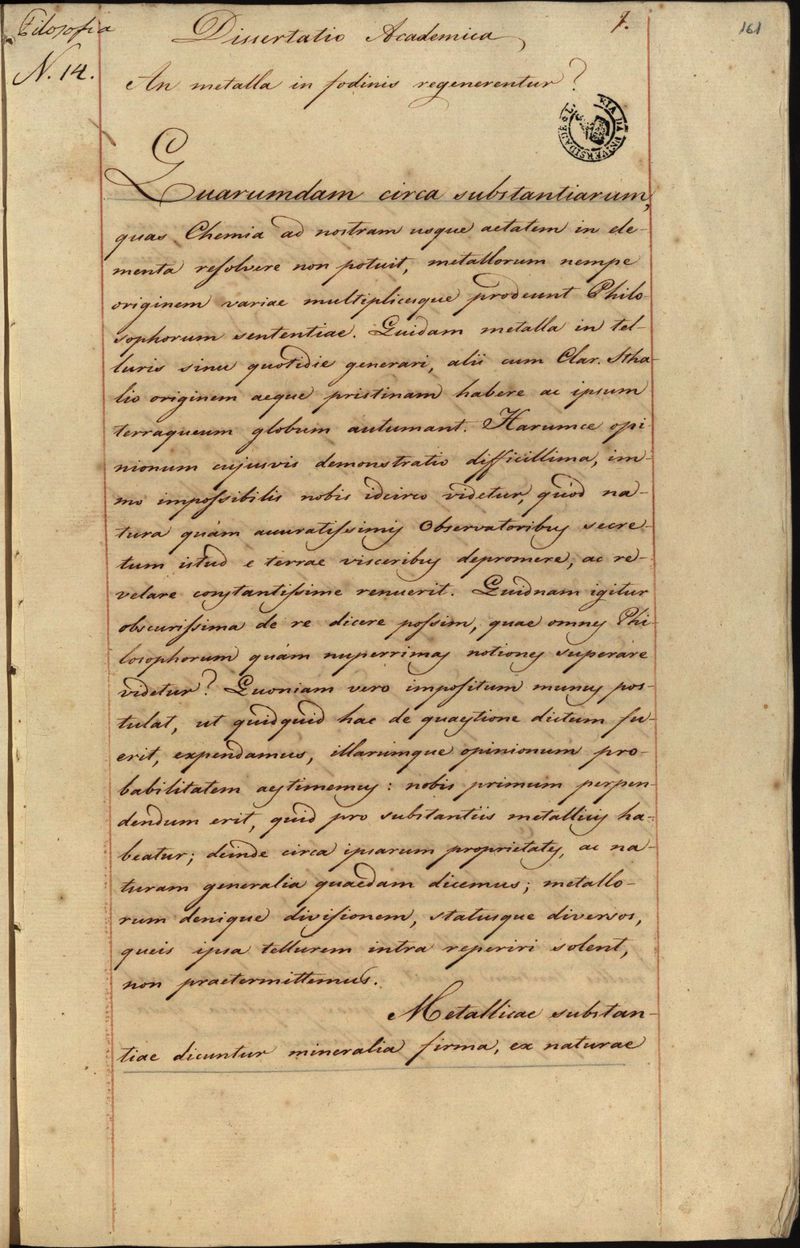 Filosofia
N. 14.
Dissertatio Academica
1.
161
An metalla in fodinis regenerentur?
Quarumdam circa substantiarum,
quas Chemia ad nostram usque aetatem in ele-
menta resolvere non potuit, metallorum nempe
originem variae multiplicesque prodeunt Philo-
sophorum sententiae. Quidam metalla in tel-
luris sinu quotidie generari, alii cum Clar. Stha-
lio originem aeque pristinam habere ac ipsum
terraqueum globum autumant. Harumce opi-
nionum cujusvis demonstratio difficillima, im-
mo impossibilis nobis idcirco videtur, quòd na-
tura quám accuratissimis Observatoribus secre-
tum istud e terrae visceribus depromere, ac re-
velare constantissime renuerit. Quidnam igitur
obscurissima de re dicere possim, quae omnes Phi-
losophorum quám nuperrimas notiones superare
videtur? Quoniam vero impositum munus pos-
tulat, ut quidquid hac de quaestione dictum fu-
erit, expendamus, illarumque opinionum pro-
babilitatem aestimemus: nobis primum perpen-
dendum erit, quid pro substantiis metallicis ha-
beatur; deinde circa ipsarum proprietates, ac na-
turam generalia quaedam dicemus; metallo-
rum denique divisionem, statusque diversos,
queis ipsa tellurem intra reperiri solent,
non praetermittemus.
Metallicae substan-
tiae dicuntur mineralia firma, ex naturae